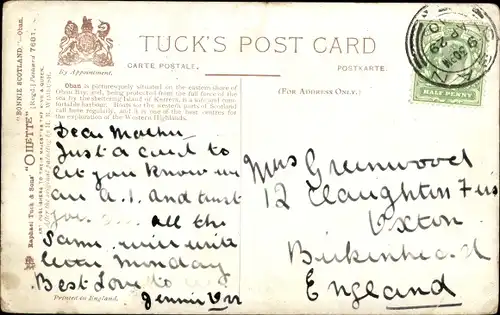 "BONNIE SCOTLAND." — Oban.
Raphael Tuck & Sons' "OILETTE" [Regd.] Postcard 7681.
ART PUBLISHERS TO THEIR MAJESTIES THE KING & QUEEN.
After the original Painting by H. B. Wimbush.
By Appointment.
TUCK'S POST CARD
CARTE POSTALE.
POSTKARTE.
(FOR ADDRESS ONLY.)
HALF PENNY
Oban is picturesquely situated on the eastern shore of
Oban Bay, and, being protected from the full force of the
sea by the sheltering Island of Kerrera, is a safe and com-
fortable harbour. Boats for the western ports of Scotland
call here regularly, and it is one of the best centres for
the exploration of the Western Highlands.
Dear Mother
Just a card to
let you know we
are A.1. and trust
you all the
same. will write
letter Monday
Best Love to
Jennie
Mrs Greenwood
12 Claughton
Oxton
Birkenhead
England
Printed in England.